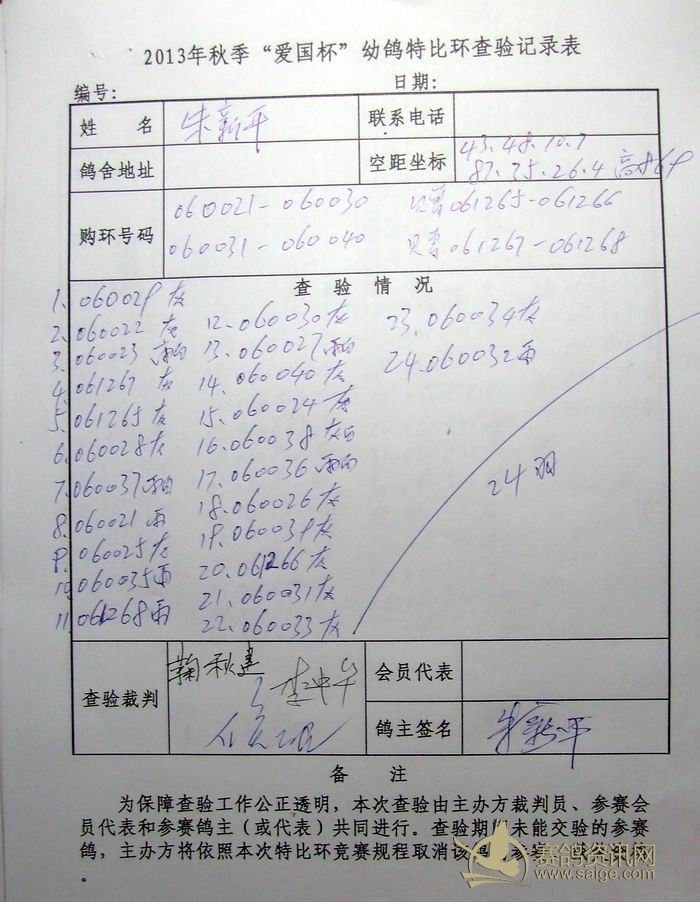 2013年秋季“爱国杯”幼鸽特比环查验记录表
编号: 日期:
姓 名 朱新平 联系电话
鸽舍地址 空距坐标 43.48.10.7
87.35.26.4
购环号码 060021-060030 只写061265-061266
060031-060040 只写061267-061268
查 验 情 况
1、060029灰
2、060022灰 12、060030灰 23、060034灰
3、060023雨白 13、060027雨白 24、060032雨
4、061267灰 14、060040灰
5、061265灰 15、060024灰
6、060028灰 16、060038灰白
7、060037雨白 17、060036雨白 24羽
8、060021雨 18、060026灰
9、060025灰 19、060039灰
10、060035雨 20、061266灰
11、061268雨 21、060031灰
22、060033灰
查验裁判 鞠秋建 李中华 会员代表
鸽主签名 朱新平
备 注
为保障查验工作公正透明，本次查验由主办方裁判员、参赛会
员代表和参赛鸽主（或代表）共同进行。查验期 未能交验的参赛
鸽，主办方将依照本次特比环竞赛规程取消该
。
赛鸽资讯网
www.saige.com